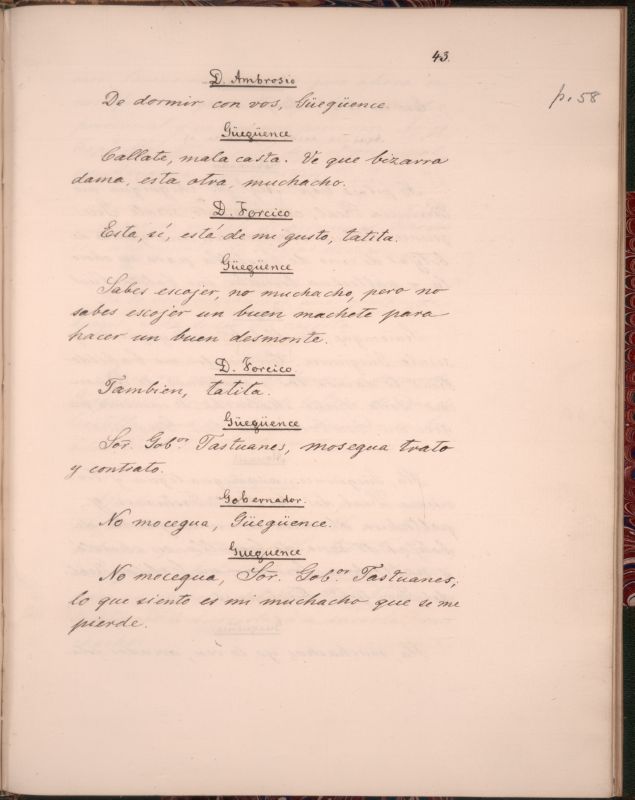 43.
p. 58
D. Ambrosio
De dormir con vos, Güegüence.
Güegüence
Callate, mala casta. Ve que bizarra
dama, esta otra, muchacho.
D. Forcico
Esta, sí, está de mi gusto, tatita.
Güegüence
Sabes escojer, no muchacho, pero no
sabes escojer un buen machete para
hacer un buen desmonte.
D. Forcico
Tambien, tatita.
Güegüence
Sor. Gobor. Tastuanes, mosegua trato
y contrato.
Gobernador.
No mocegua, Güegüence.
Güegüence
No mocegua, Sor. Gobor. Tastuanes,
lo que siento es mi muchacho que se me
pierde.